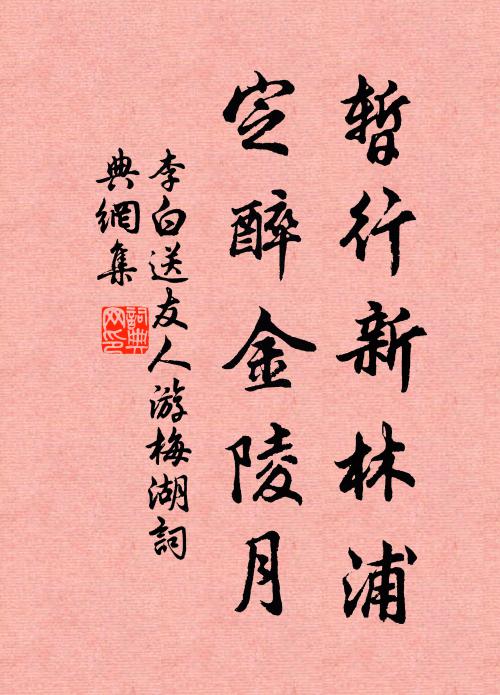 暫行新林浦
定醉金陵月
李白送友人游梅湖詞
典網集
詞典網印